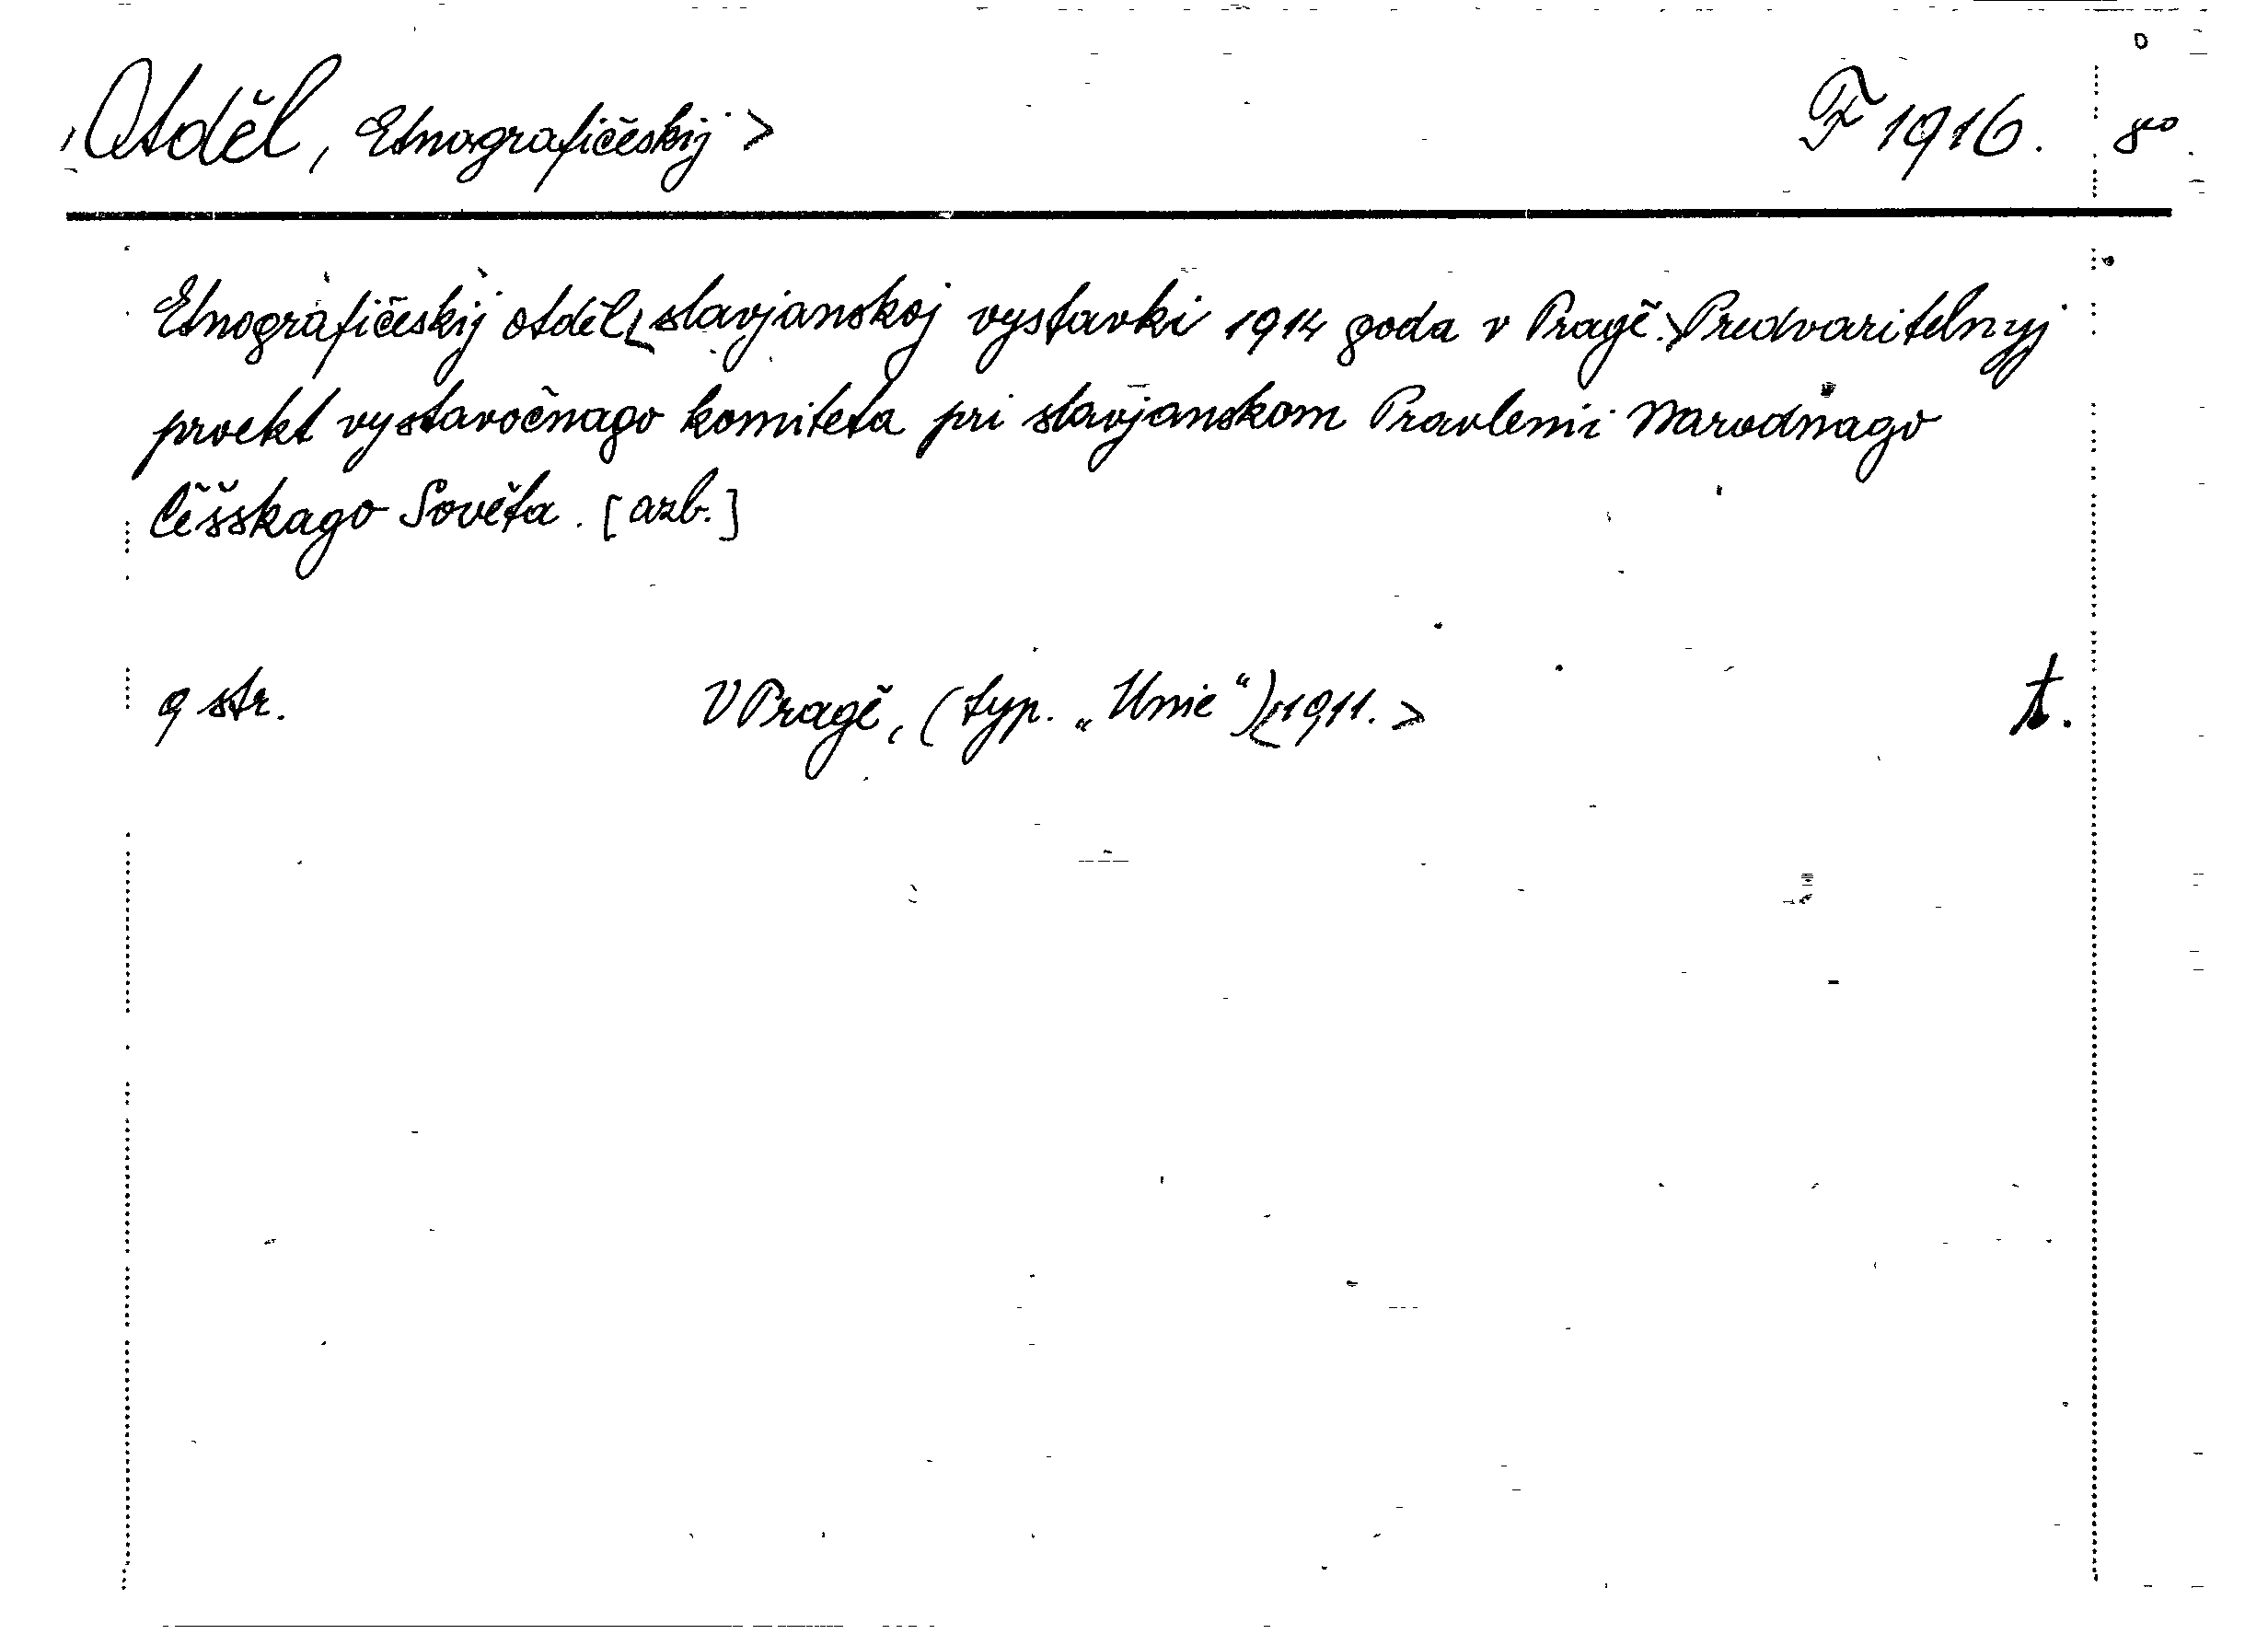 Otděl, Etnografičěskij > F 1916. 8°
Etnografičěskij otděl < slavjanskoj vystavki 1914 goda v Pragě. > Predvaritelnyj
proekt vystavočnago komiteta pri slavjanskom Pravlenii Narodnago
Čěšskago Sověta. [azb.]
9 str. V Pragě, (typ. „Unie“) < 1911. > t.